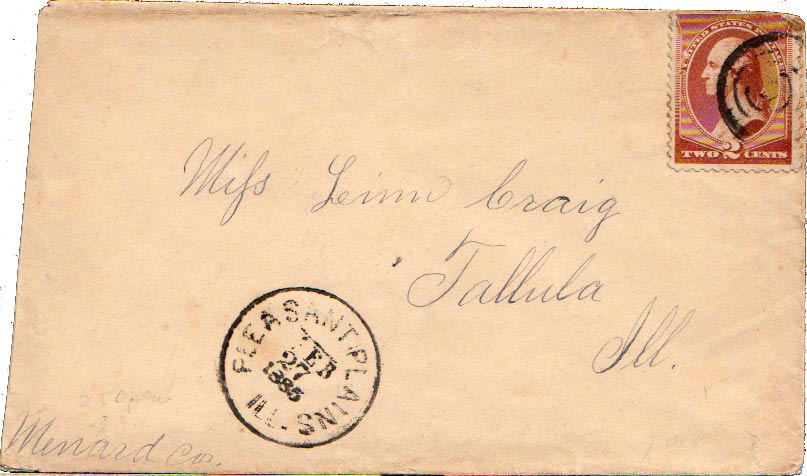 UNITED STATES POSTAGE
TWO 2 CENTS
Miſs Linn Craig
Tallula
Ill.
PLEASANT PLAINS
FEB
27
1885
ILL.
Menard Co.